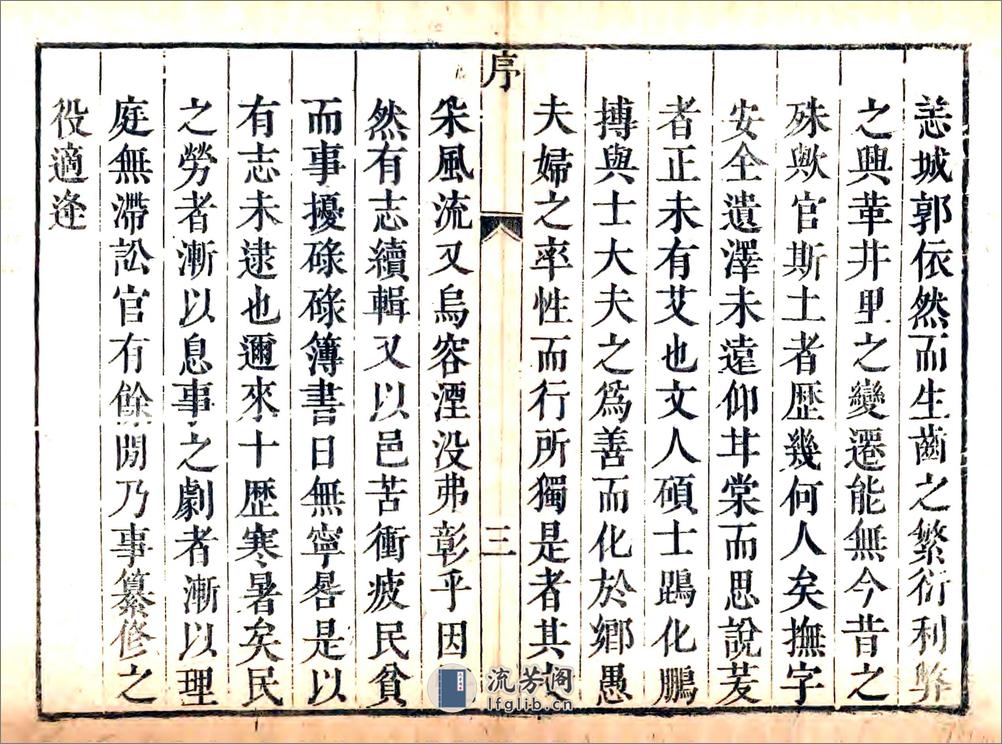 恙城郭依然而生齒之繁衍利弊
之興革井里之變遷能無今昔之
殊歟官斯土者歷幾何人矣撫字
安仝遺澤未遠仰甘棠而思說茇
者正未有艾也文人碩士鵾化鵬
搏與士大夫之爲善而化於鄉愚
夫婦之率性而行所獨是者其
序
三
采風流又烏容湮没弗彰乎因
然有志續輯又以邑苦衝疲民貧
而事擾碌碌簿書日無寧晷是以
有志未逮也邇來十歷寒暑矣民
之勞者漸以息事之劇者漸以理
庭無滯訟官有餘閒乃事纂修之
役適逢
流芳阁
lfglib.cn